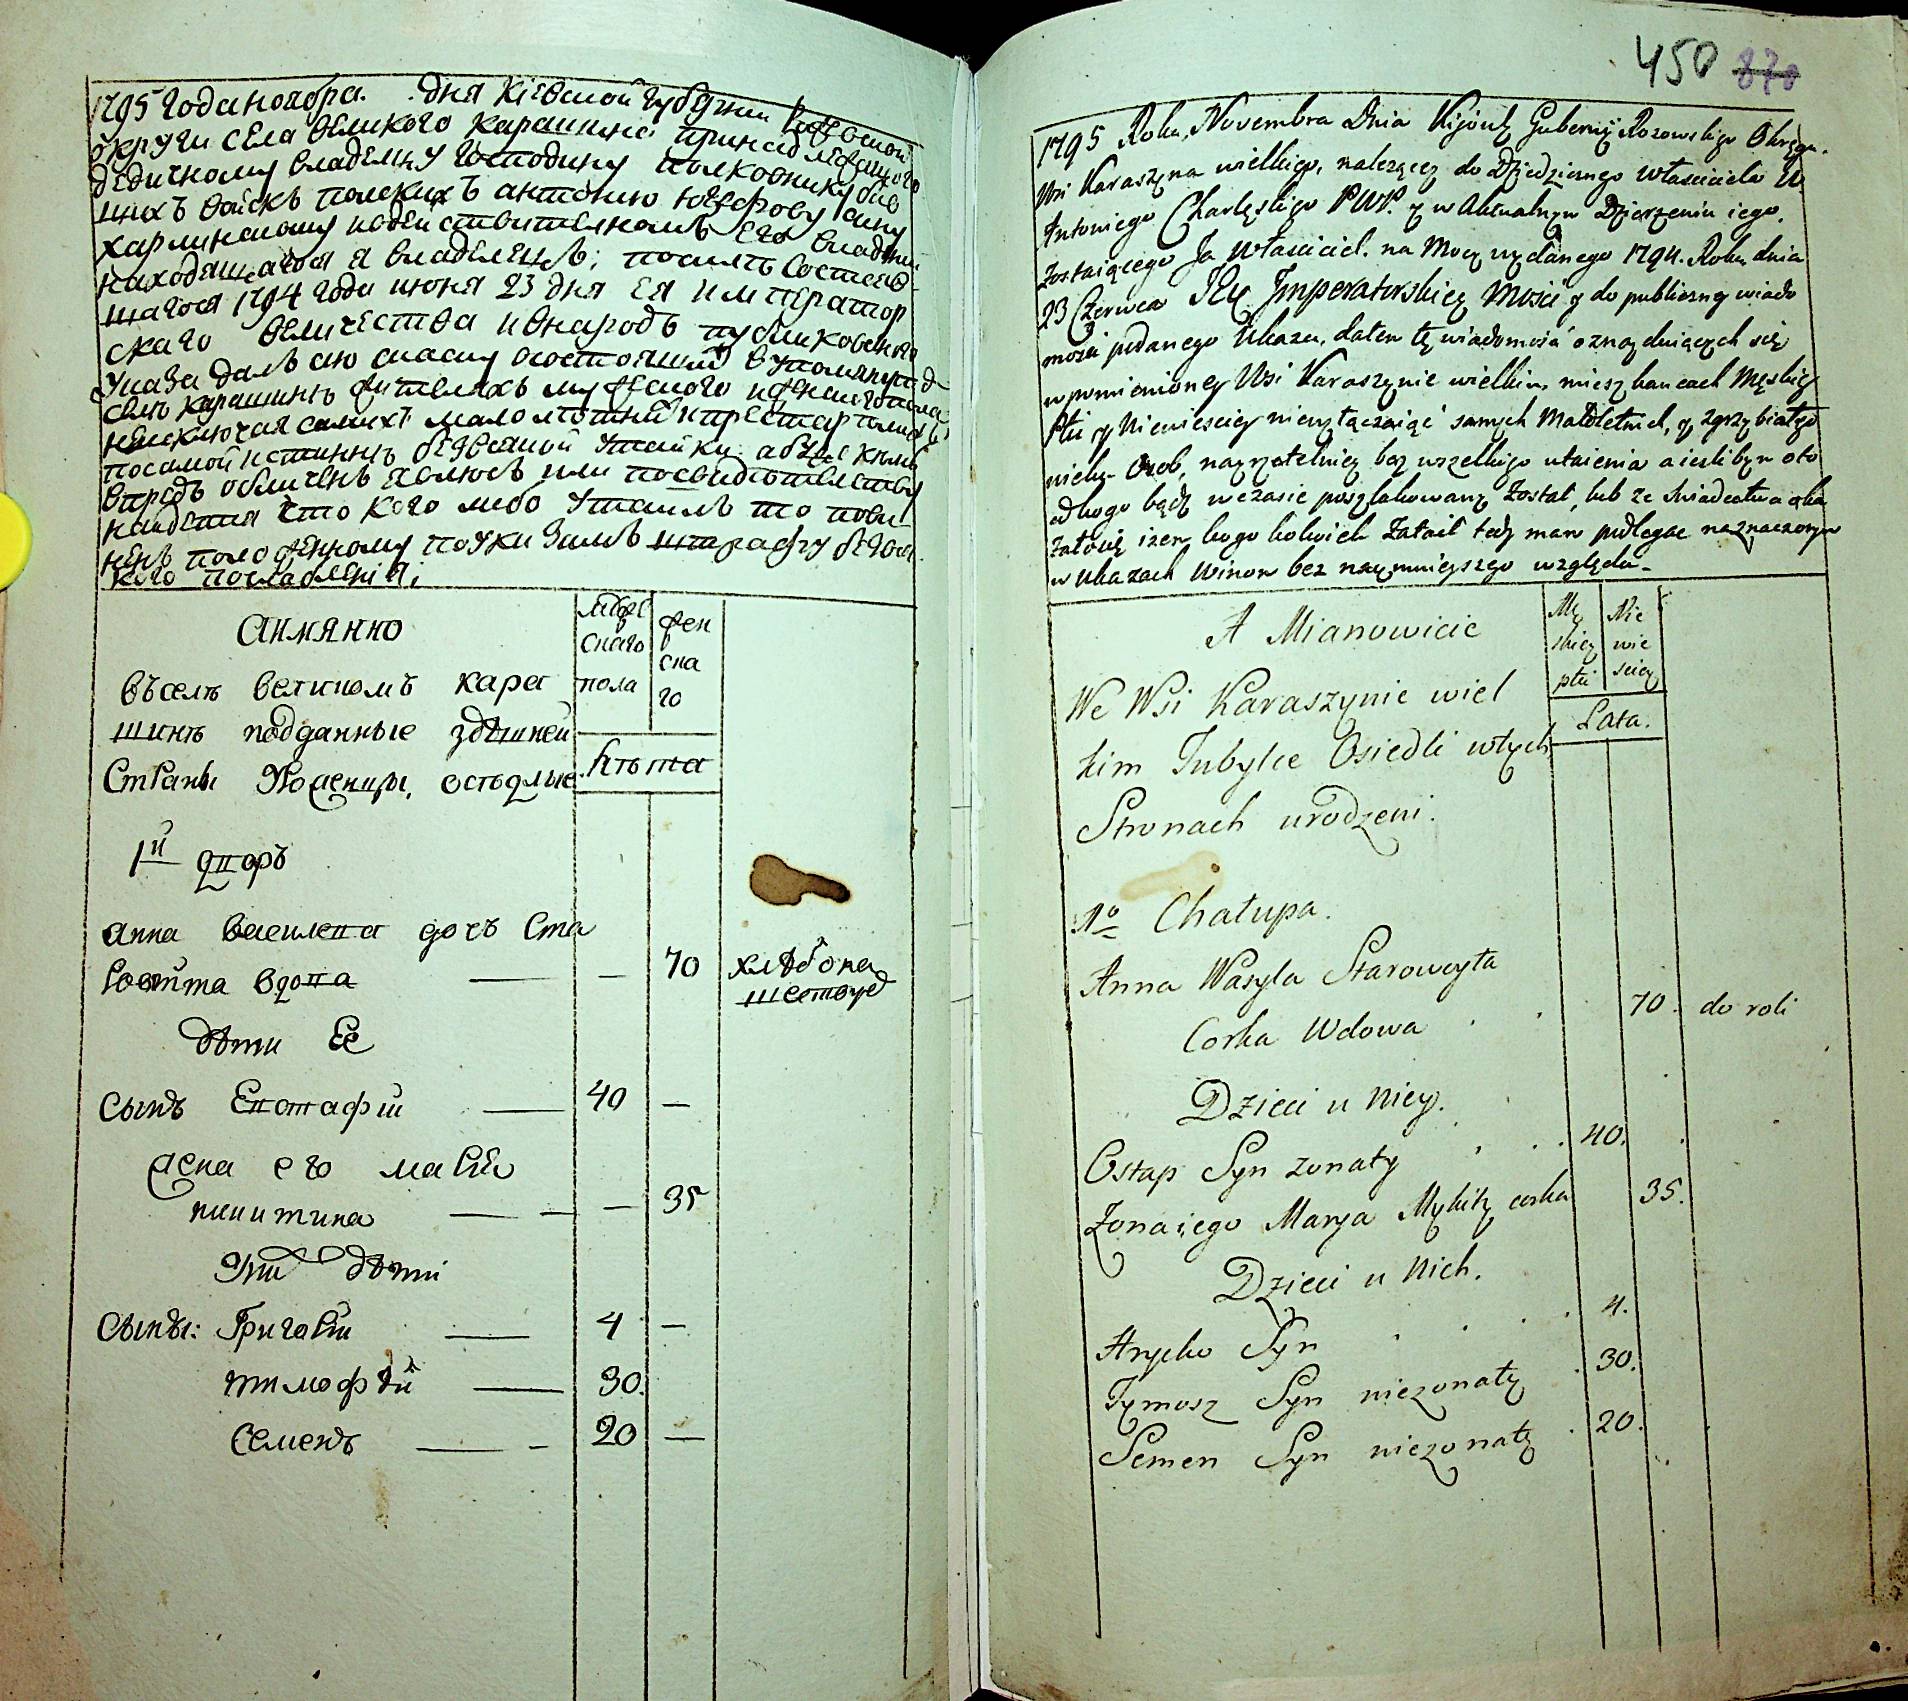 1795 Года ноября. дня Кіевской Губерніи
округи села Великого Карашина принадлежащого
дедичному владелцу Господину полковнику бив
шихъ войскъ полскихъ антонию Юзефову сину
харлинскому и въ действителномъ Его владении
находящагося я владелецъ; по силъ состояв
шагося 1794 года июня 23 дня Ея Император
скаго Величества и внародъ публикованного
Указа далъ сію сказку о состоящихъ в упомянутомъ
селъ Карашинъ жителяхъ мужеского и женского пола
неисключая самихъ малолътнихъ и престарълихъ
по самой истиннъ безъ всякой утайки а буде къмъ
впредь обличенъ явлюсь или по свидътелству
найдется что кого либо утаилъ то пови
ненъ положенному по указамъ штрафу безо вся
кого послабленія;
Аимянно
мужес
скаго
пола
жен
ска
го
въ селъ великомъ кара
шинъ подданные здъшней
Страны Уроженцы, осъдлые.
лъта
1й дворъ
Анна василева дочь Ста
ровойта вдова — — 70
хлъбопа
шествуе
дъти Ее
Сынъ Евстафій — 40 —
жена его маврія
никитина — — — 35
Ихъ дъти
Сынъ: Григорій — 4 —
тимофъй — 30.
Семенъ — - 20 —
450 870
1795 Roku, Novembra Dnia Kijowskiey Gubernij Rozowskiego Okręgu.
Wsi Karaszyna wielkiego, należącey do Dziedzicznego właściciela W
Antoniego Charlęskiego PWP. y w Aktualnym Dzierżeniu iego.
Zostaiącego Ja Właściciel. na Mocy wydanego 1794. Roku dnia
23 Czerwca Jey Imperatorskiey Mości y do publiczney wiado
mości podanego Ukazu, dałem tę wiadomość o znayduiących się
w pomienioney Wsi Karaszynie wielkim, mieszkańcach Męskiey
Płci y Niewiesciey niewyłączaiąc samych Małoletnich, y zgrzybiałego
wieku Osob, nayrzetelniey bez wszelkiego utaienia a ieslibym oto
od kogo bądz w czasie poszlakowany został, lub ze swiadectwa oka
załosię iżem kogo kolwiek Zataił tedy mam podlegac naznaczonym
w Ukazach Winom bez naymnieyszego względu-
A Mianowicie
Mę
skiey
płci
Nie
wie
sciey
We Wsi Karaszynie wiel
kim Tubylce Osiedli w tych
Stronach urodzeni.
Lata.
1o Chałupa.
Anna Wasyla Starowoyta
Corka Wdowa 70. do roli
Dzieci u Niey.
Ostap Syn żonaty 40.
Żona iego Marya Mykity corka 35.
Dzieci u Nich.
Hryćko Syn 4.
Tymosz Syn nieżonaty 30.
Semen Syn nieżonaty 20.